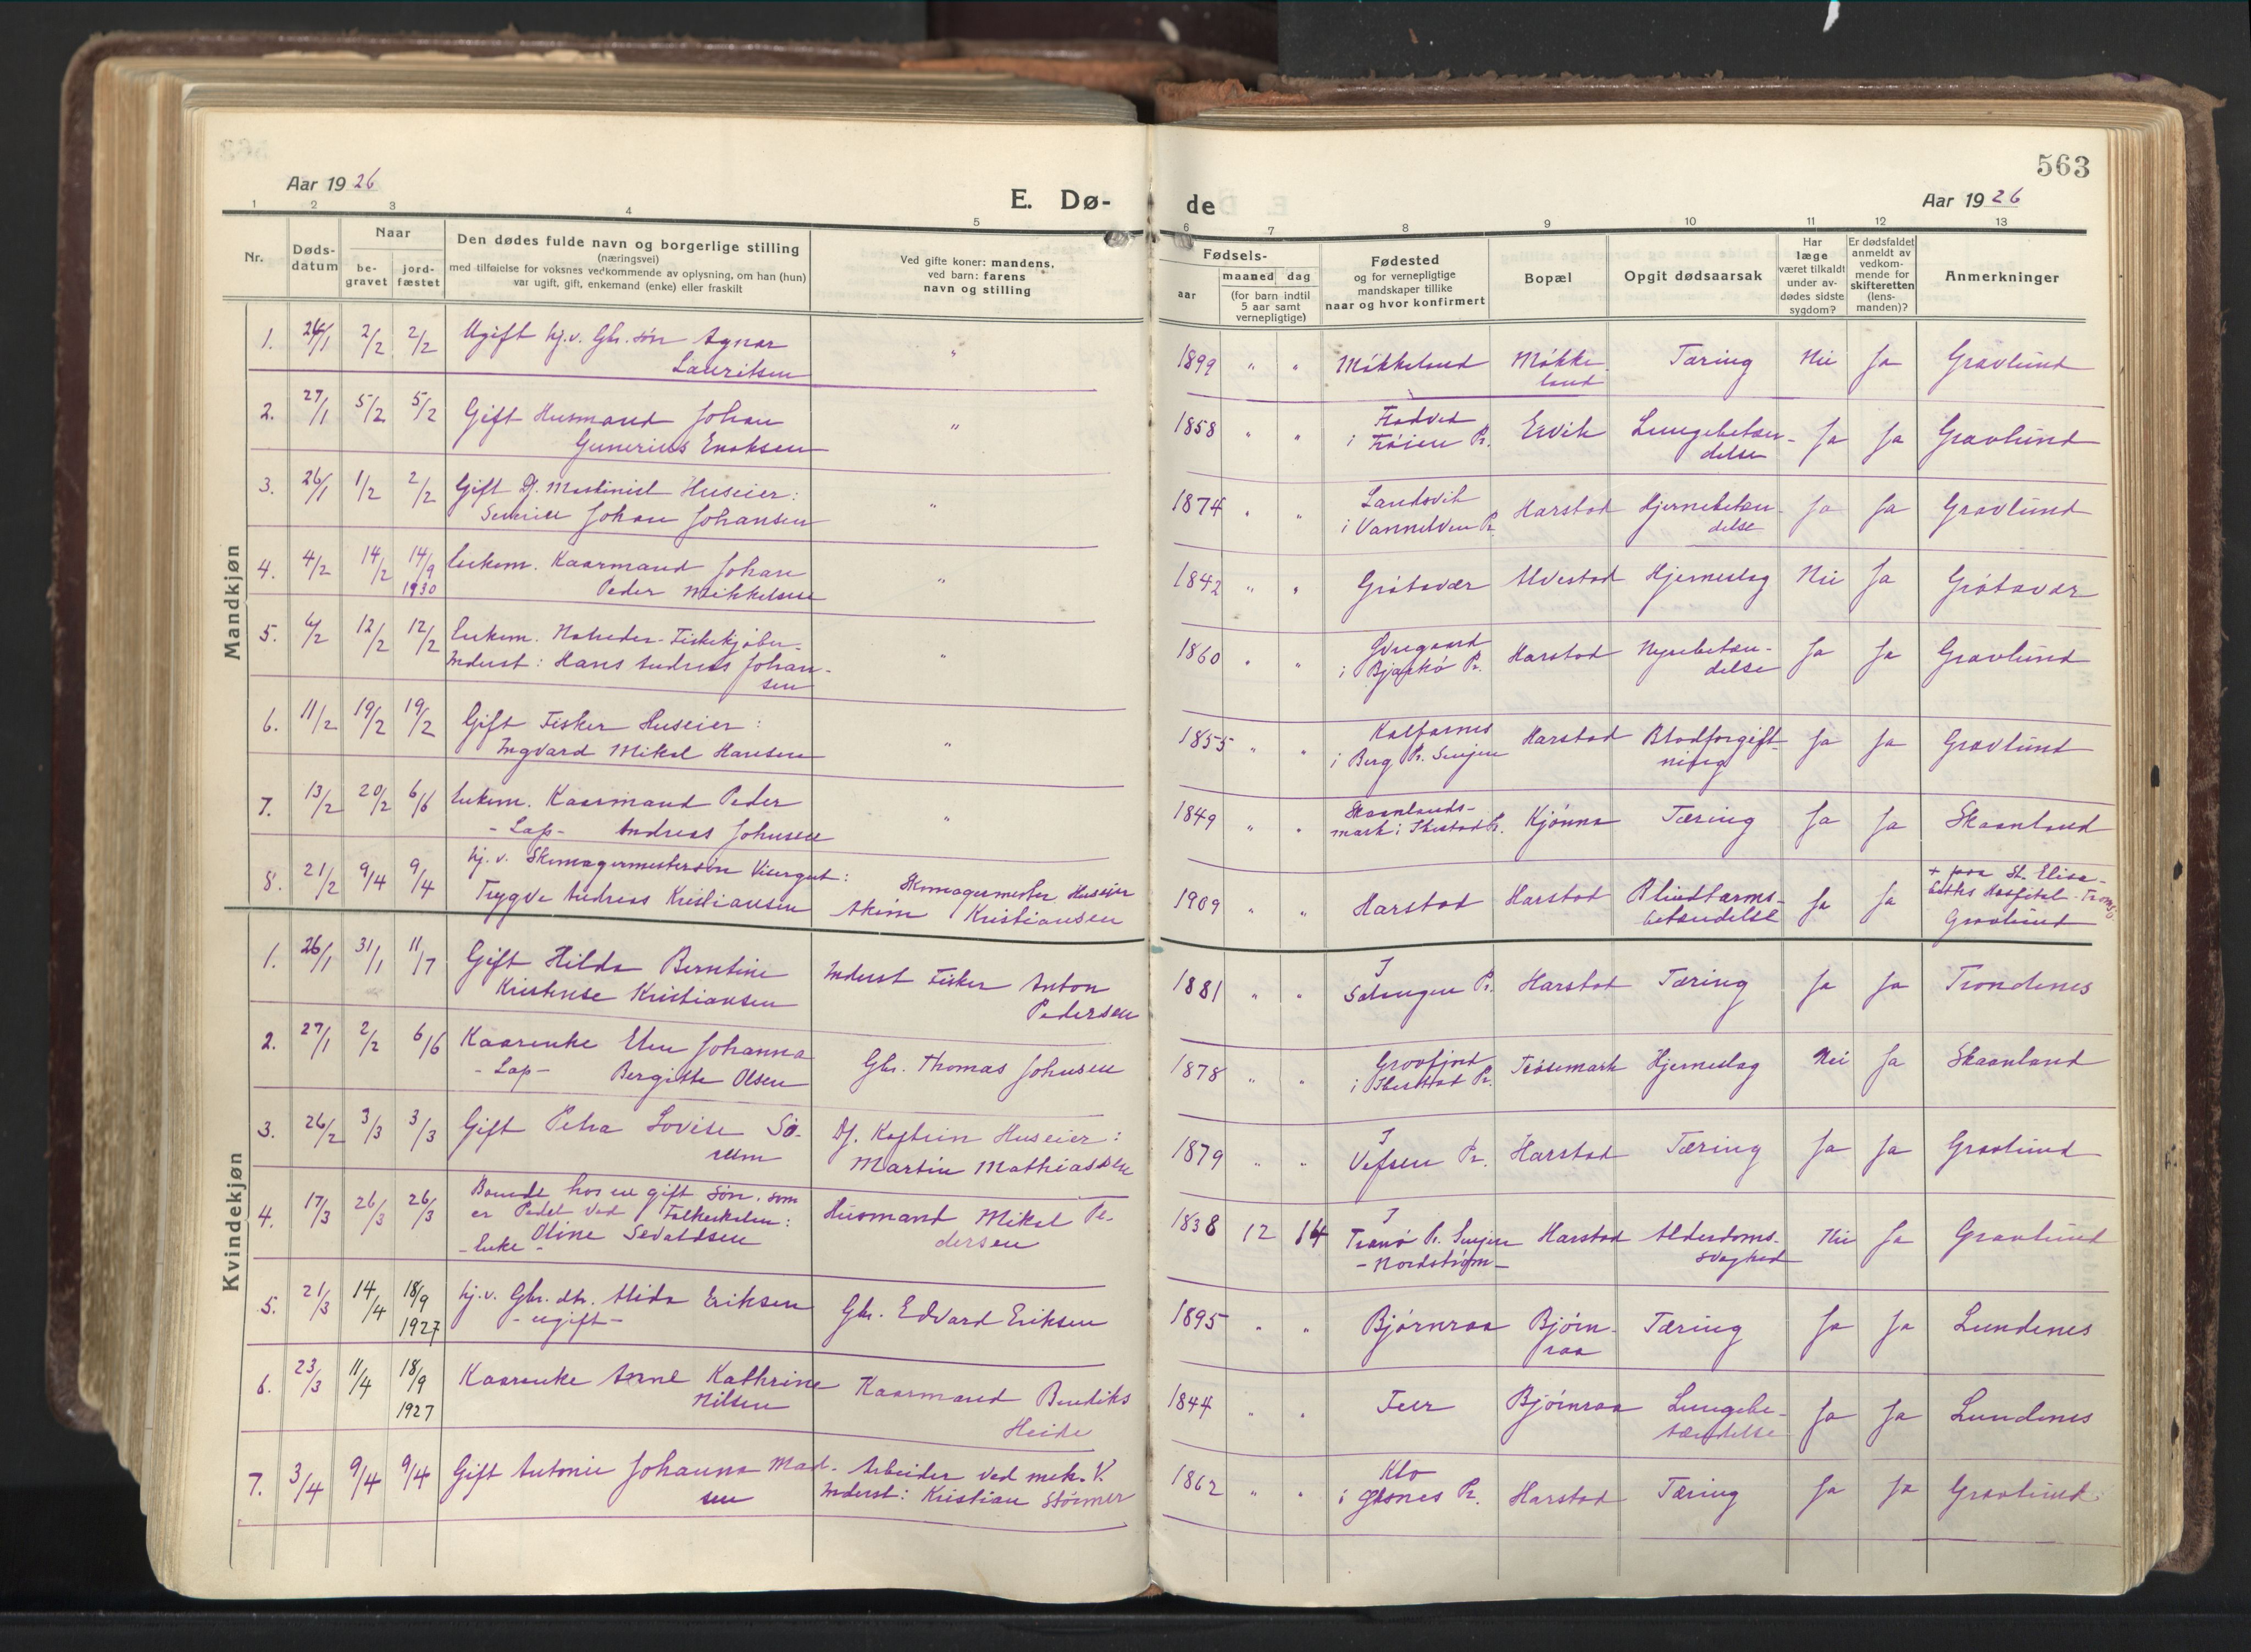 563
Aar 1926
E. Dø-
de
Aar 1926
1 2 3 4 5 6 7 8 9 10 11 12 13
Nr.
Døds-
datum
Naar
be-
gravet
jord-
fæstet
Den dødes fulde navn og borgerlige stilling
(næringsvei)
med tilføielse for voksnes vedkommende av oplysning, om han (hun)
var ugift, gift, enkemand (enke) eller fraskilt
Ved gifte koner: mandens,
ved barn: farens
navn og stilling
Fødsels-
aar
maaned dag
(for barn indtil
5 aar samt
vernepligtige)
Fødested
og for vernepligtige
mandskaper tillike
naar og hvor konfirmert
Bopæl
Opgit dødsaarsak
Har
læge
været tilkaldt
under av-
dødes sidste
sygdom?
Er dødsfaldet
anmeldt av
vedkom-
mende for
skifteretten
(lens-
manden)?
Anmerkninger
Mandkjøn
1. 26/1 2/2 2/2 Ugift hj.v. Gbr. søn Agnar
Lauritsen
" 1899 " " Møkkeland Møkke
land
Tæring Nei Ja Gravlund
2. 27/1 5/2 5/2 Gift Husmand Johan
Gunerius Enoksen
" 1858 " "
i Trøien Pr. Ervik Lungebetæn-
delse
Ja Ja Gravlund
3. 26/1 1/2 2/2 Gift Df. Maskinist Huseier:
Johan Johansen
" 1874 " " Landsvik
i Vannelven Pr. Harstad Hjernebetæn-
delse
Ja Ja Gravlund
4. 4/2 14/2 14/9
1930
Enkem. Kaarmand Johan
Peder Mikkelsen
" 1842 " " Grøtavær Alvestad Hjerneslag Nei Ja Grøtavær
5. 6/2 12/2 12/2 Enkem. Notreder-Fiskekjøber-
Inderst: Hans Andreas Johan-
sen
" 1860 " "
i Bjarkø Pr. Harstad Nyrebetæn-
delse
Ja Ja Gravlund
6. 11/2 19/2 19/2 Gift Fisker Huseier:
Ingvard Mikal Hansen
" 1855 " " Kalfarnes
i Berg Pr. Senjen Harstad Blodforgift-
ning
Ja Ja Gravlund
7. 13/2 20/2 6/6 Enkem. Kaarmand Peder
- Lap - Andreas Johnsen
" 1849 " " Skaanlands-
mark i Ibestad Pr. Kjønna Tæring Ja Ja Skaanland
8. 21/2 9/4 9/4 hj.v. Skomagermestersøn Visergut:
Trygve Andreas Kristiansen
Skomagermester Huseier
Akim Kristiansen
1909 " " Harstad Harstad Blindtarms-
betændelse
Ja Ja + paa St. Elisa-
beths Hospital - Tromsø
Gravlund
Kvindekjøn
1. 26/1 31/1 11/7 Gift Hilda Berntine
Kristense Kristiansen
Inderst Fisker Anton
Pedersen
1881 " " I
Salangen Pr. Harstad Tæring Ja Ja Trondenes
2. 27/1 2/2 6/6 Kaarenke Elen Johanna
- Lap - Bergitte Olsen
Gbr. Thomas Johnsen
1878 " " Grovfjord
i Ibestad Pr. Trøsemark Hjerneslag Nei Ja Skaanland
3. 26/2 3/3 3/3 Gift Petra Lovise Sø-
rum
Df. Kaptein Huseier:
Martin Mathiassen
1879 " " I
Vefsen Pr. Harstad Tæring Ja Ja Gravlund
4. 17/3 26/3 26/3 Boende hos en gift søn, som
er Pedel ved Folkeskolen:
- Enke - Oline Sevaldsen
Husmand Mikal Pe-
dersen
1838 12 14 I
Tranø Pr. Senjen
- Nordstrøm -
Harstad Alderdoms-
svaghed
Nei Ja Gravlund
5. 21/3 14/4 18/9
1927
hj.v. Gbr. dtr. Alida Eriksen
- ugift -
Gbr. Edvard Eriksen
1895 " " Bjørnraa Bjørn-
raa
Tæring Ja Ja Lundenes
6. 23/3 11/4 18/9
1927
Kaarenke Anne Kathrine
Nilsen
Kaarmand Bendiks
Heide
1844 " " Bjørnraa Lungebe-
tændelse
Ja Ja Lundenes
7. 3/4 9/4 9/4 Gift Antonie Johanna Mad-
sen
Arbeider ved mek. V.
Inderst: Kristian Størmer
1862 " " Klo
i Øksnes Pr. Harstad Tæring Ja Ja Gravlund